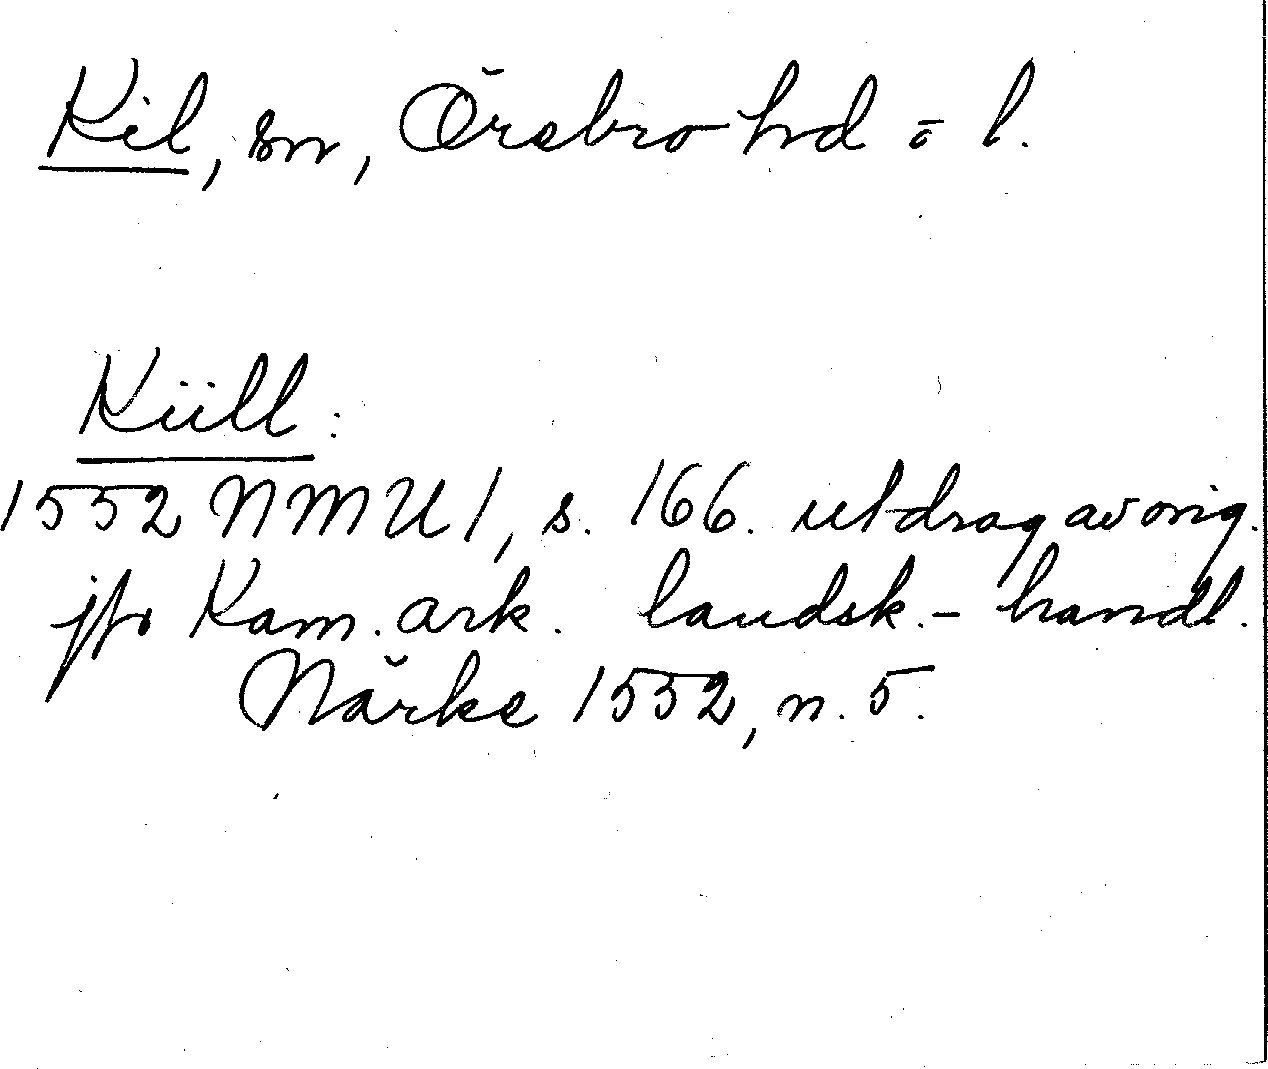 Kil, sn, Örebro hd o l.
Küll:
1552 NMU 1, s. 166. utdrag av orig.
jfr Kam. ark. landsk.-handl.
Närke 1552, n. 5.